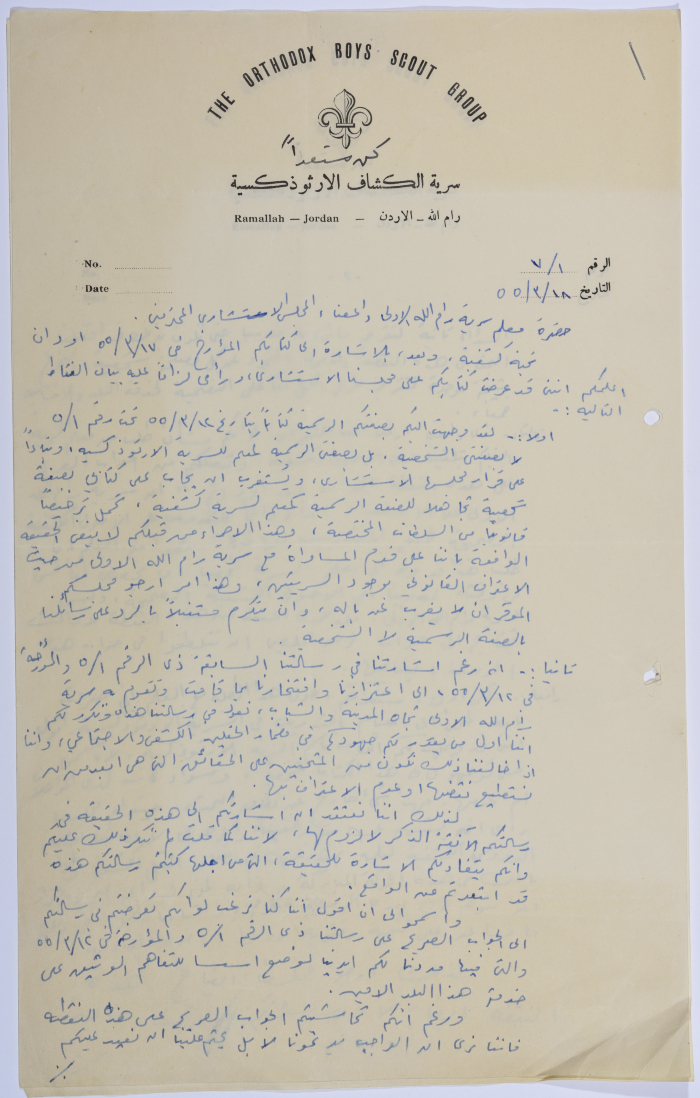 THE ORTHODOX BOYS SCOUT GROUP
كن مستعداً
سرية الكشاف الارثوذكسية
Ramallah — Jordan — رام الله ـ الاردن
No. الرقم ٧/١
Date التاريخ ٥٥/٣/١٨
حضرة معلم سرية رام الله الاولى واعضاء المجلس الاستشاري المحترمين .
تحية كشفية ، وبعد ، بالاشارة الى كتابكم المؤرخ في ٥٥/٣/١٧ اود ان
اعلمكم انني قد عرضت كتابكم على مجلسنا الاستشاري ، عليه بيان النقاط
التالية :-
اولا :- لقد وجهت اليكم بصفتكم الرسمية كتاباً بتاريخ ٥٥/٣/١٢ تحت رقم ٥/١
لا بصفتي الشخصية . بل بصفتي الرسمية كمعلم للسرية الارثوذكسية ، وبناءاً
على قرار مجلسها الاستشاري ، ويستغرب ان يجاب على كتابي بصفة
شخصية تجاهلا للصفة الرسمية كمعلم لسرية كشفية ، تحمل ترخيصاً
قانونياً من السلطات المختصة ، وهذا الاجراء من قبلكم لا ينفي الحقيقة
الواقعة باننا على قدم المساواة مع سرية رام الله الاولى من حيث
الاعتراف القانوني بوجود السريتين ، وهذا امر ارجو مجلسكم
الموقر ان لا يغرب عن باله ، وان يتكرم مستقبلاً بالرد على رسائلنا
بالصفة الرسمية لا الشخصية .
ثانيا :- انه رغم اشارتنا في رسالتنا السابقة ذي الرقم ٥/١ والمؤرخة
في ٥٥/٣/١٢ ، الى اعتزازنا وافتخارنا بما قامت وتقوم به سرية
رام الله الاولى تجاه المدينة والشباب ، نعود في رسالتنا هذه ونكرر لكم
اننا اول من يقدر لكم جهودكم في مضمار الحقلين الكشفي والاجتماعي ، واننا
اذا خالفنا ذلك نكون من المتجنين على الحقائق التي هي ابعد من ان
نستطيع نقضها وعدم الاعتراف بها .
لذلك اننا نعتقد ان اشارتكم الى هذه الحقيقة في
رسالتكم الآنفة الذكر لا لزوم لها ، لاننا كما قلت لم ننكر ذلك عليكم
وانكم بتفاديكم الاشارة للحقيقة ، التي من اجلها كتبتم رسالتكم هذه
قد ابتعدتم عن الواقع .
واسمحوا لي ان اقول اننا كنا نرغب لو انكم تعرضتم في رسالتكم
الى الجواب الصريح على رسالتنا ذي الرقم ٥/١ والمؤرخة في ٥٥/٣/١٢
والتي فيها مددنا لكم ايدينا لوضع اسسا للتفاهم الوثيق على
خدمة هذا البلد الامين .
ورغم انكم تحاشيتم الجواب الصريح على هذه النقطة
فاننا نرى ان الواجب يدعونا لا بل يحتم علينا ان نعيد عليكم